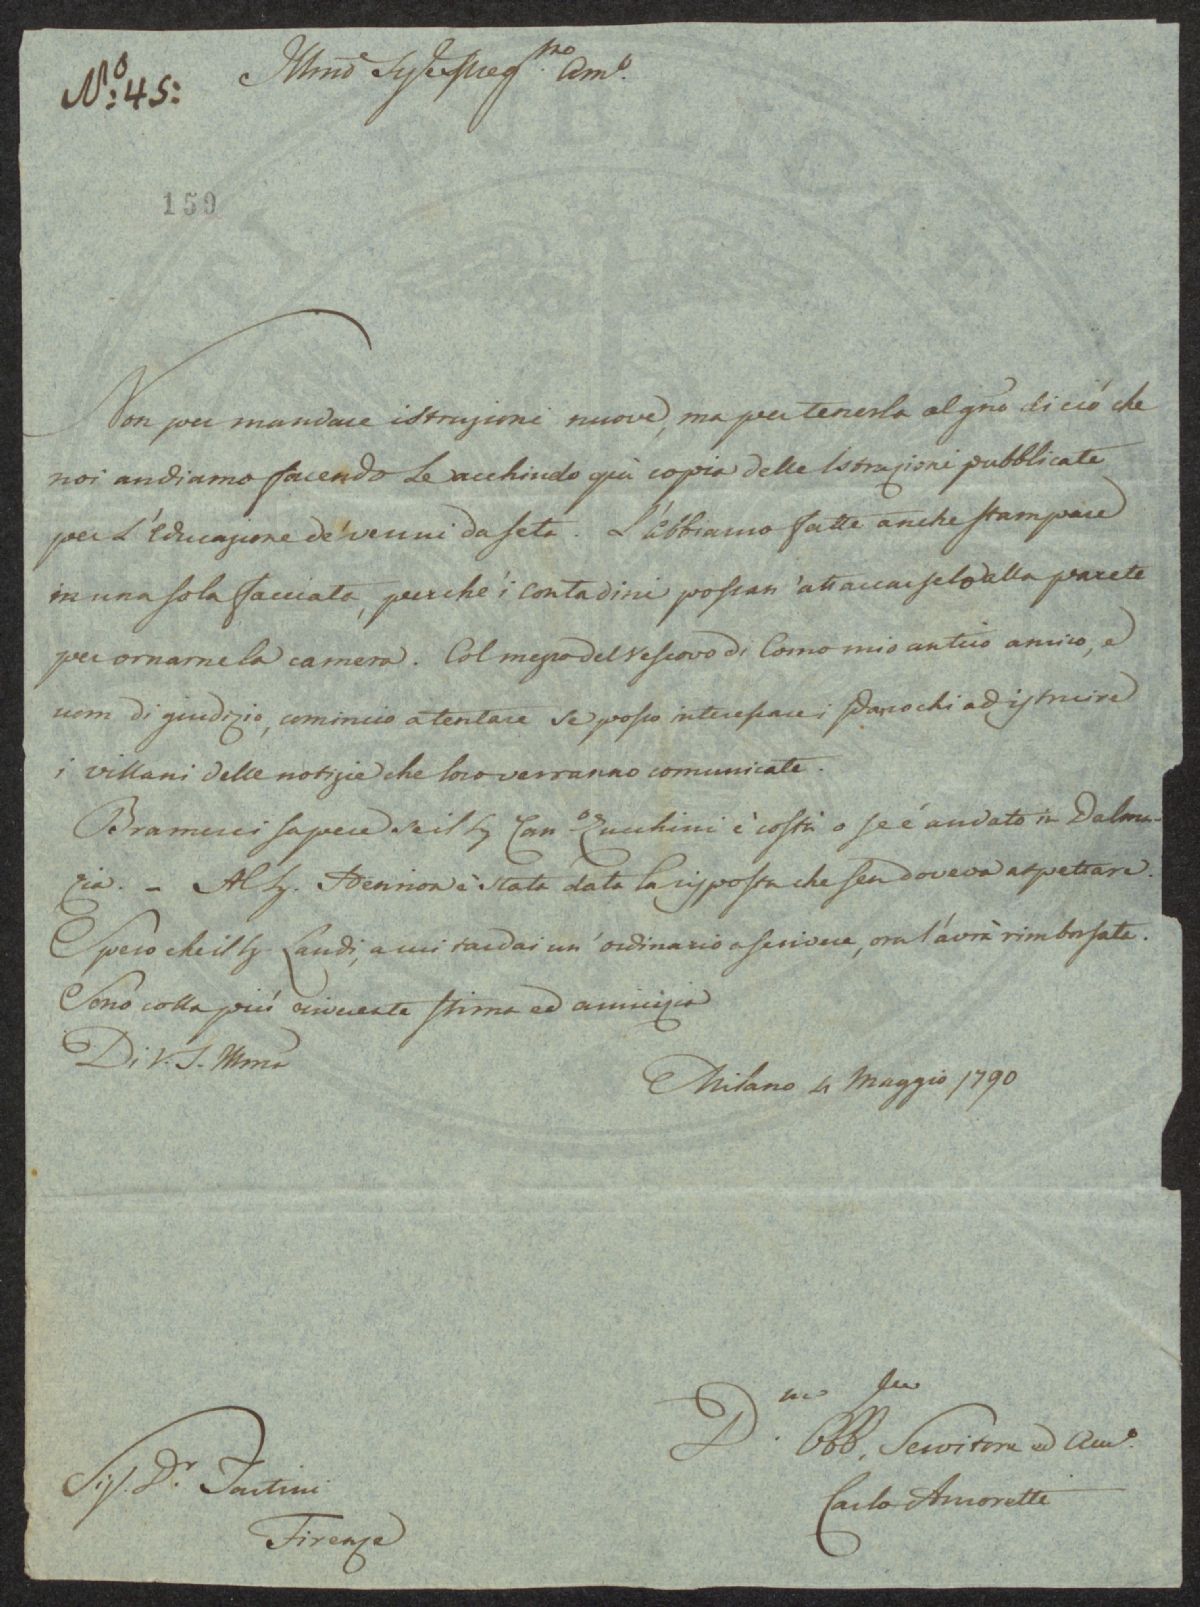 N.º 45:
Illmo Sig.e Preg.mo Am.o
159
Non per mandare istruzioni nuove, ma per tenerla al gno di ciò che
noi andiamo facendo Le acchiudo quì copia delle Istruzioni pubblicate
per l'educazione de' vermi da seta. L'abbiamo fatte anche stampare
in una sola facciata, perchè i contadini possan' attaccarselo alla parete
per ornarne la camera. Col mezzo del Vescovo di Como mio antico amico, e
uom di giudizio, comincio a tentare se posso interessare i Parochi ad istruire
i villani delle notizie che loro verranno comunicate.
Bramerei sapere se il Sig Can.o Zucchini è costà o se è andato in Dalma-
zia. - Al Sig. è stata data la risposta che sen doveva aspettare.
Spero che il Sig Landi, a cui tardai un' ordinario a scrivere, ora l'avrà rimborsata.
Sono colla più sincera stima ed amicizia
Di V. S. Illma
Milano 4 Maggio 1790
D.mo Obb.mo Servitore ed Am.o
Carlo Amoretti
Sig. D.r Tartini
Firenze